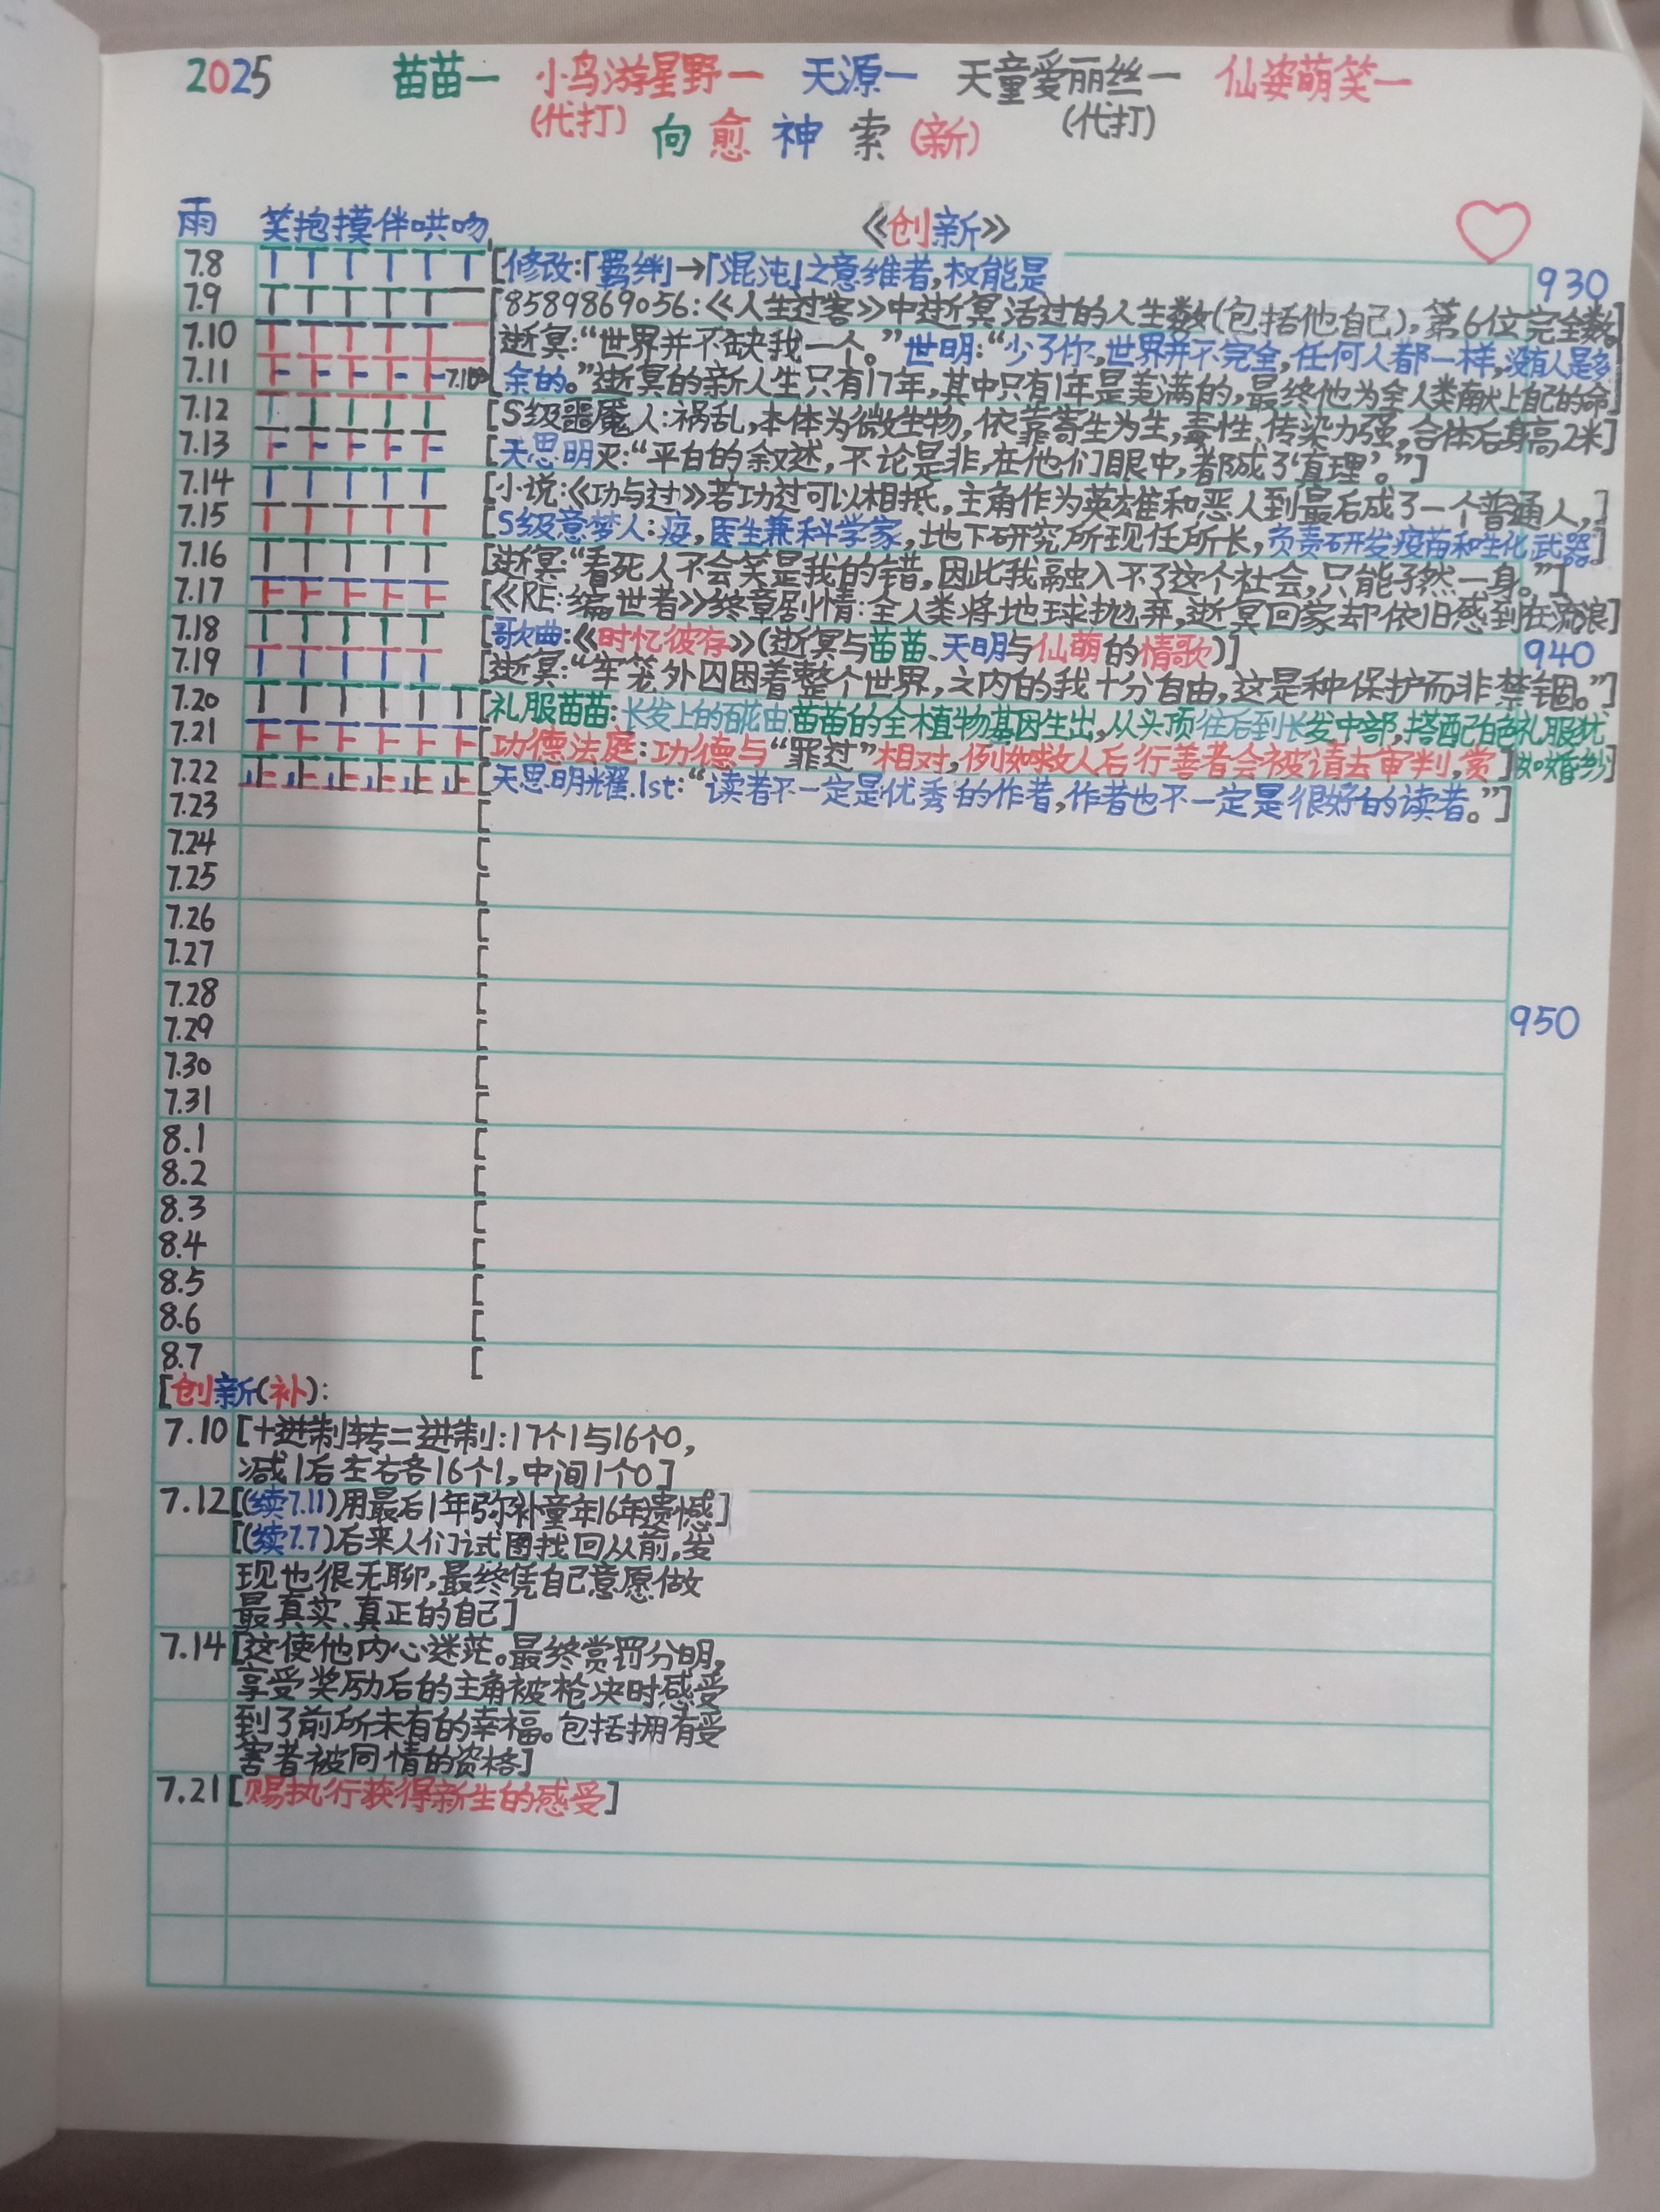 2025 苗苗一 小鸟游星野一 天源一 天童爱丽丝一 仙姿萌笑一
(代打) (代打)
向愈神索(新)
雨 笑抱摸伴哄吻 《创新》
7.8 [修改:「羁绊」→「混沌」之意维者,权能是
930
7.9 [8589869056:《人生过客》中逝冥活过的人生数(包括他自己),第6位完全数。]
7.10 [逝冥:“世界并不缺我一个。”世明:“少了你,世界并不完全,任何人都一样,没有人是多
7.11 7.10→ 余的。”逝冥的新人生只有17年,其中只有1年是美满的,最终他为全人类献上自己的命]
7.12 [S级噩魇人:祸乱,本体为微生物,依靠寄生为生,毒性、传染力强,合体后身高2米]
7.13 [天思明灭:“平白的叙述,不论是非,在他们眼中,都成了‘真理’。”]
7.14 [小说:《功与过》若功过可以相抵,主角作为英雄和恶人到最后成了一个普通人,]
7.15 [S级意梦人:疫,医生兼科学家,地下研究所现任所长,负责研发疫苗和生化武器]
7.16 [逝冥:“看死人不会笑是我的错,因此我融入不了这个社会,只能孑然一身。”]
7.17 [《RE:编世者》终章剧情:全人类将地球抛弃,逝冥回家却依旧感到在流浪]
7.18 [歌曲:《时忆彼存》(逝冥与苗苗、天明与仙萌的情歌)]
940
7.19 [逝冥:“牢笼外囚困着整个世界,之内的我十分自由,这是种保护而非禁锢。”]
7.20 [礼服苗苗:长发上的花由苗苗的全植物基因生出,从头顶往后到长发中部,搭配白色礼服犹
7.21 [功德法庭:功德与“罪过”相对,例如救人后行善者会被请去审判,赏] 如婚纱]
7.22 [天思明耀.1st:“读者不一定是优秀的作者,作者也不一定是很好的读者。”]
7.23 [
7.24 [
7.25 [
7.26 [
7.27 [
7.28 [
950
7.29 [
7.30 [
7.31 [
8.1 [
8.2 [
8.3 [
8.4 [
8.5 [
8.6 [
8.7 [
[创新(补):
7.10 [十进制转二进制:17个1与16个0,
减1后左右各16个1,中间1个0]
7.12 [(续7.11)用最后1年弥补童年16年遗憾]
[(续7.7)后来人们试图找回从前,发
现也很无聊,最终凭自己意愿做
最真实、真正的自己]
7.14 [这使他内心迷茫。最终赏罚分明,
享受奖励后的主角被枪决时感受
到了前所未有的幸福。包括拥有受
害者被同情的资格]
7.21 [赐执行获得新生的感受]